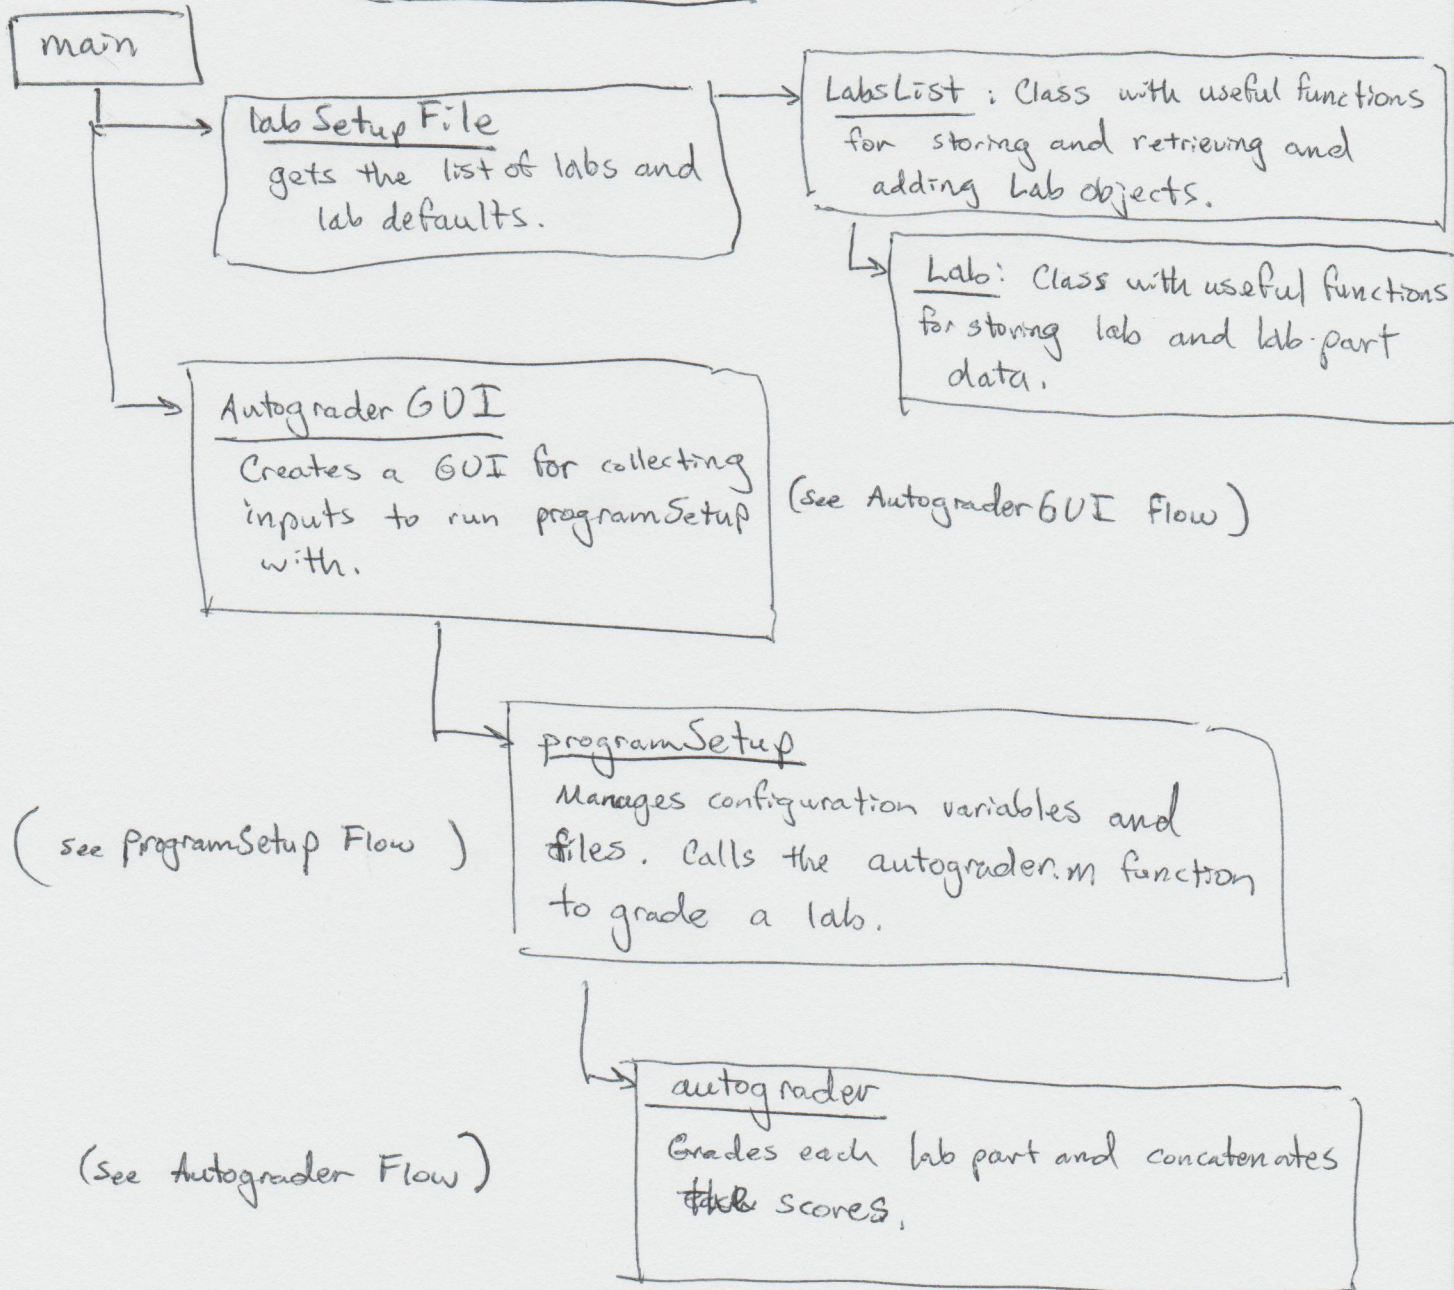 main
labSetupFile
gets the list of labs and
lab defaults.
LabsList : Class with useful functions
for storing and retrieving and
adding Lab objects.
Lab: Class with useful functions
for storing lab and lab part
data.
Autograder GUI
Creates a GUI for collecting
inputs to run programSetup
with.
(see Autograder GUI Flow)
programSetup
Manages configuration variables and
files. Calls the autograder.m function
to grade a lab.
(see programSetup Flow)
autograder
Grades each lab part and concatenates
the scores.
(see Autograder Flow)